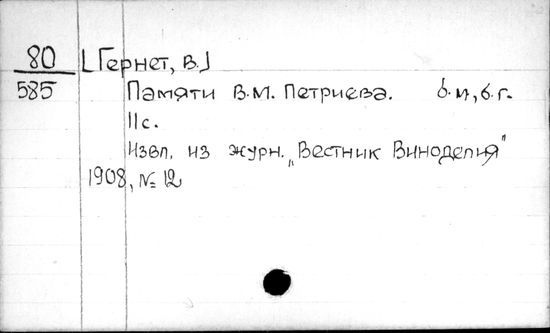 80 [Гернет, В.]
585 Памяти В.М. Петриева. б.м,б.г.
11с.
Извл. из журн. „Вестник Виноделия"
1908, № 12